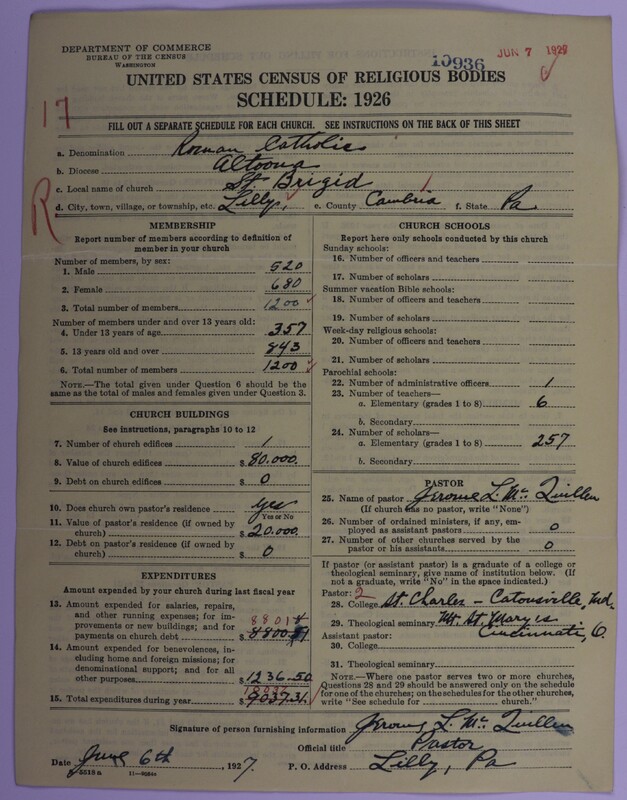 DEPARTMENT OF COMMERCE
BUREAU OF THE CENSUS
WASHINGTON
10936
JUN 7 1927
UNITED STATES CENSUS OF RELIGIOUS BODIES
SCHEDULE: 1926
17
FILL OUT A SEPARATE SCHEDULE FOR EACH CHURCH. SEE INSTRUCTIONS ON THE BACK OF THIS SHEET
a. Denomination Roman Catholic
b. Diocese Altoona
c. Local name of church St. Brigid
R
d. City, town, village, or township, etc. Lilly, e. County Cambria f. State Pa
MEMBERSHIP
Report number of members according to definition of
member in your church
Number of members, by sex:
1. Male 520
2. Female 680
3. Total number of members 1200
Number of members under and over 13 years old:
4. Under 13 years of age 357
5. 13 years old and over 843
6. Total number of members 1200
NOTE.—The total given under Question 6 should be the
same as the total of males and females given under Question 3.
CHURCH BUILDINGS
See instructions, paragraphs 10 to 12
7. Number of church edifices 1
8. Value of church edifices $ 80.000.
9. Debt on church edifices $ 0
10. Does church own pastor's residence Yes
Yes or No
11. Value of pastor's residence (if owned by
church) $ 20.000.
12. Debt on pastor's residence (if owned by
church) $ 0
EXPENDITURES
Amount expended by your church during last fiscal year
13. Amount expended for salaries, repairs,
and other running expenses; for im-
provements or new buildings; and for
payments on church debt $ 8801
14. Amount expended for benevolences,
including home and foreign missions; for
denominational support; and for all
other purposes $ 1236.50
15. Total expenditures during year $ 9037.31
CHURCH SCHOOLS
Report here only schools conducted by this church
Sunday schools:
16. Number of officers and teachers
17. Number of scholars
Summer vacation Bible schools:
18. Number of officers and teachers
19. Number of scholars
Week-day religious schools:
20. Number of officers and teachers
21. Number of scholars
Parochial schools:
22. Number of administrative officers 1
23. Number of teachers—
a. Elementary (grades 1 to 8) 6
b. Secondary
24. Number of scholars—
a. Elementary (grades 1 to 8) 257
b. Secondary
PASTOR
25. Name of pastor Jerome L. Mc Quillen
(If church has no pastor, write "None")
26. Number of ordained ministers, if any, em-
ployed as assistant pastors 0
27. Number of other churches served by the
pastor or his assistants 0
If pastor (or assistant pastor) is a graduate of a college or
theological seminary, give name of institution below. (If
not a graduate, write "No" in the space indicated.)
Pastor: 2
28. College St. Charles - Catonsville, Md.
29. Theological seminary Mt. St. Mary's
Cincinnati, O.
Assistant pastor:
30. College
31. Theological seminary
NOTE.—Where one pastor serves two or more churches,
Questions 28 and 29 should be answered only on the schedule
for one of the churches; on the schedules for the other churches,
write "See schedule for church."
Signature of person furnishing information Jerome L. Mc Quillen
Official title Pastor
Date June 6th, 1927. P. O. Address Lilly, Pa